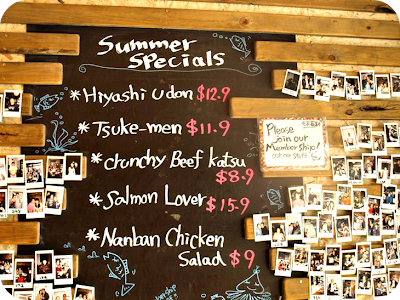 Summer
Specials
* Hiyashi Udon $12.9
* Tsuke-men $11.9
* crunchy Beef katsu
$8.9
* Salmon Lover $15.9
* Nanban Chicken
Salad $9
Please
Join our
MemberShip!